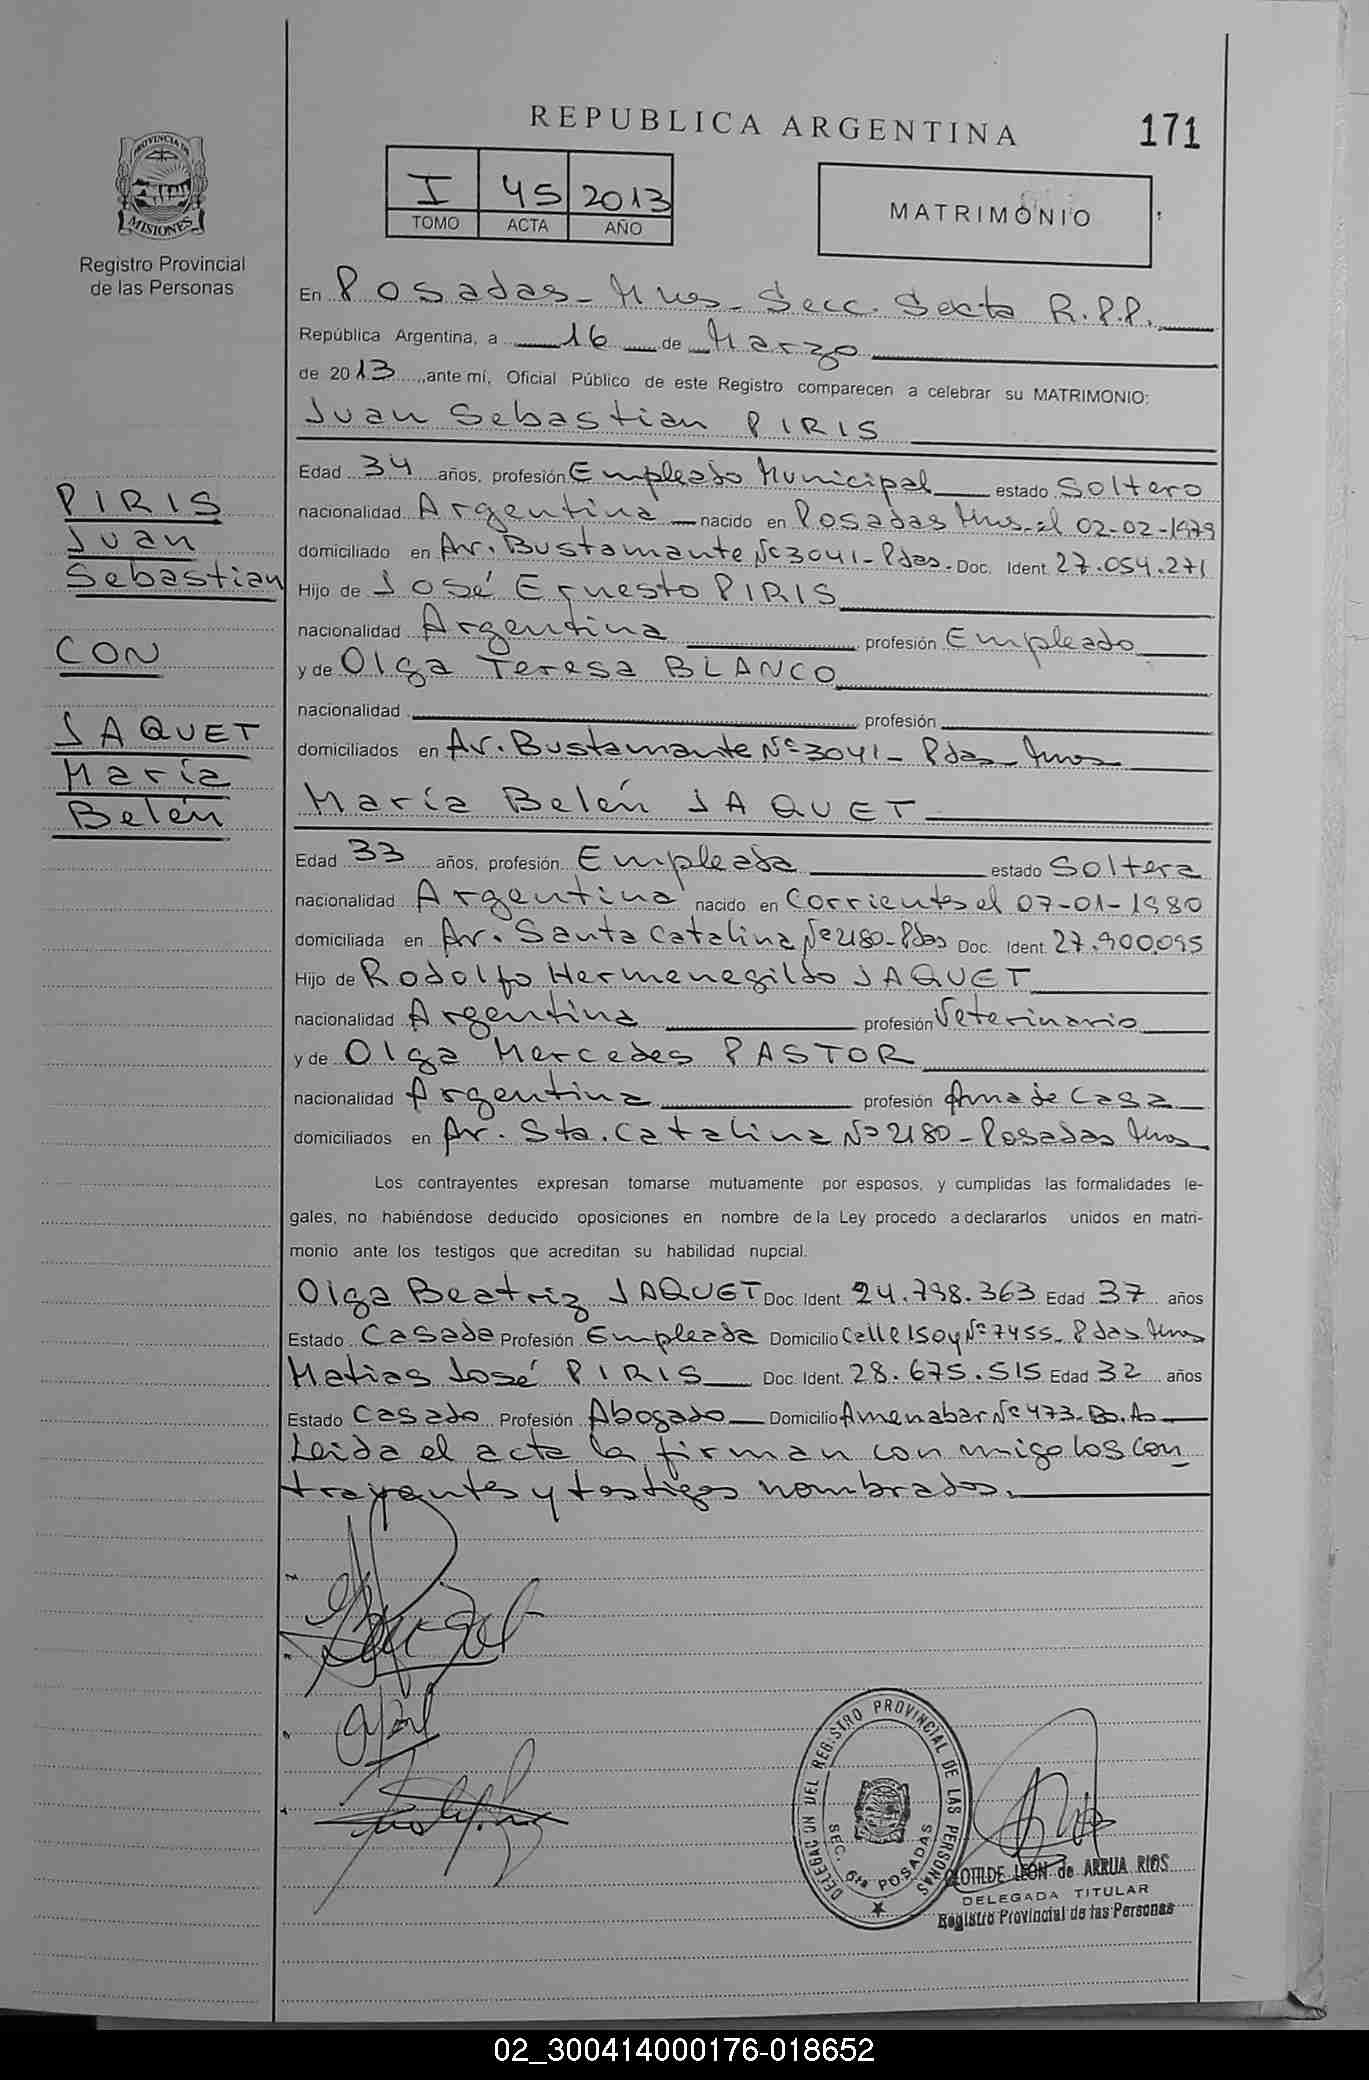 REPUBLICA ARGENTINA
171
PROVINCIA DE
MISIONES
Registro Provincial
de las Personas
I 45 2013
TOMO ACTA AÑO
MATRIMONIO
En Posadas - Mnes - Secc. Sexta R.P.P.
República Argentina, a 16 de Marzo
de 2013, ante mí, Oficial Público de este Registro comparecen a celebrar su MATRIMONIO:
Juan Sebastian PIRIS
Edad 34 años, profesión Empleado Municipal estado Soltero
nacionalidad Argentina nacido en Posadas Mnes. el 02-02-1979
domiciliado en Av. Bustamante Nº 3041 - Pdas. Doc. Ident. 27.054.271
Hijo de José Ernesto PIRIS
nacionalidad Argentina profesión Empleado
y de Olga Teresa BLANCO
nacionalidad profesión
domiciliados en Av. Bustamante Nº 3041 - Pdas - Mnes
María Belén JAQUET
Edad 33 años, profesión Empleada estado Soltera
nacionalidad Argentina nacido en Corrientes el 07-01-1980
domiciliada en Av. Santa Catalina Nº 2180 - Pdas Doc. Ident. 27.900.095
Hijo de Rodolfo Hermenegildo JAQUET
nacionalidad Argentina profesión Veterinario
y de Olga Mercedes PASTOR
nacionalidad Argentina profesión Ama de Casa
domiciliados en Av. Sta. Catalina Nº 2180 - Posadas Mnes
Los contrayentes expresan tomarse mutuamente por esposos, y cumplidas las formalidades le-
gales, no habiéndose deducido oposiciones en nombre de la Ley procedo a declararlos unidos en matri-
monio ante los testigos que acreditan su habilidad nupcial.
Olga Beatriz JAQUET Doc. Ident. 24.798.363 Edad 37 años
Estado Casada Profesión Empleada Domicilio Calle 150 y Nº 7455 - Pdas Mnes
Matias José PIRIS Doc. Ident. 28.675.515 Edad 32 años
Estado Casado Profesión Abogado Domicilio Amenabar Nº 473 - Bs. As
Leida el acta la firman conmigo los con
trayentes y testigos nombrados.
PIRIS
Juan
Sebastian
CON
JAQUET
María
Belén
DELEGAC. Nº DEL REGISTRO PROVINCIAL DE LAS PERSONAS
SEC. 6ta POSADAS
CLOTILDE LEON de ARRUA RIOS
DELEGADA TITULAR
Registro Provincial de las Personas
02_300414000176-018652